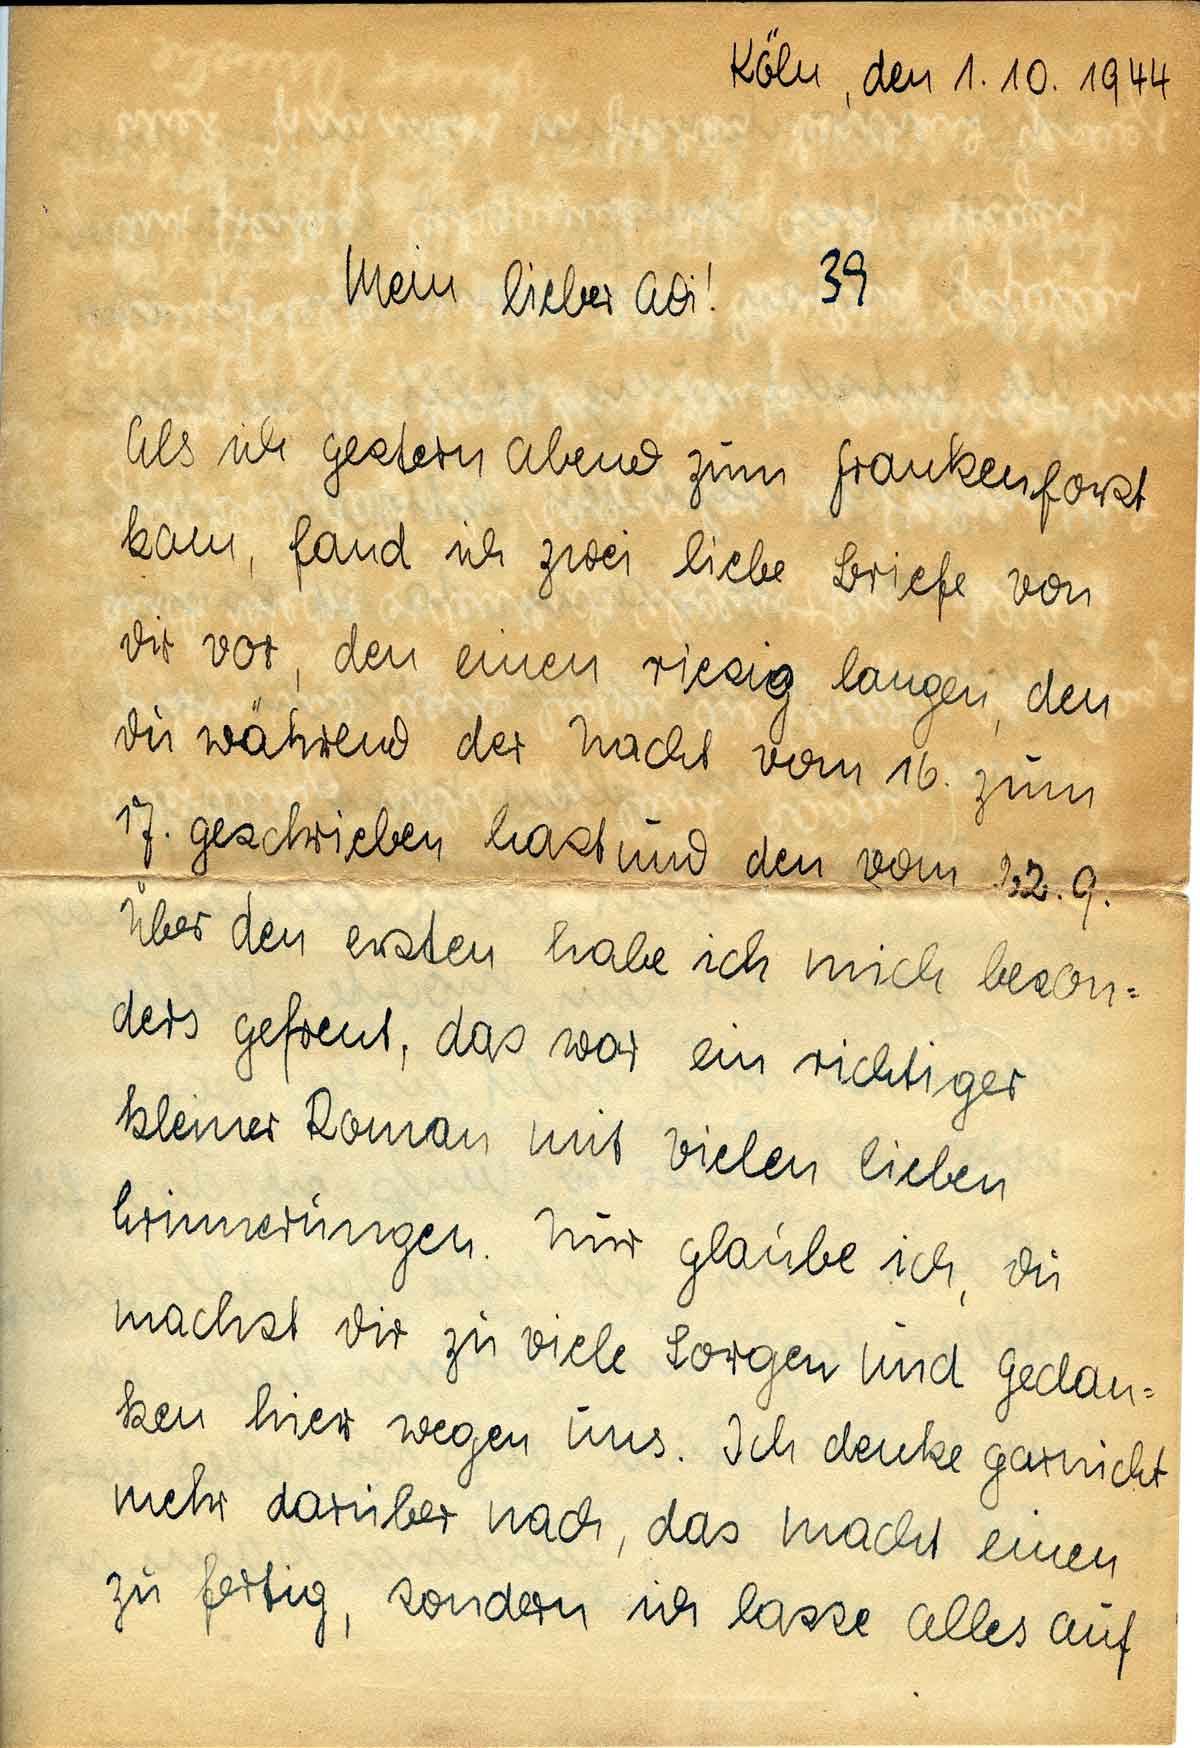 Köln, den 1. 10. 1944
Mein lieber Adi! 39
Als ich gestern Abend zum Frankenforst
kam, fand ich zwei liebe Briefe von
Dir vor, den einen riesig langen, den
Du während der Nacht vom 16. zum
17. geschrieben hast und den vom 22. 9.
Über den ersten habe ich mich beson=
ders gefreut, das war ein richtiger
kleiner Roman mit vielen lieben
Erinnerungen. Nur glaube ich, Du
machst Dir zu viele Sorgen und Gedan=
ken hier wegen uns. Ich denke garnicht
mehr darüber nach, das macht einen
zu fertig, sondern ich lasse alles auf